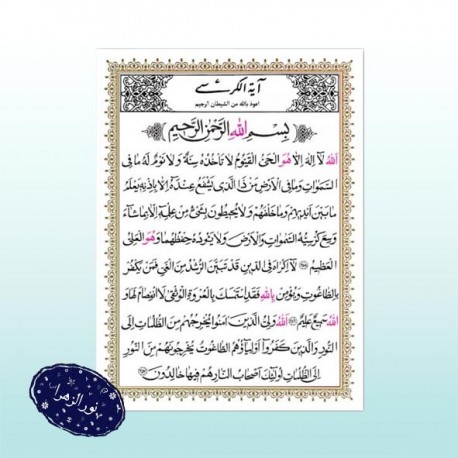 آیة الکرسے
اعوذ بالله من الشیطان الرجیم
بِسْمِ اللهِ الرَّحْمٰنِ الرَّحیمِ
اَللهُ لآ اِلهَ اِلّا هُوَ الْحَیُّ الْقَیُّومُ لا تَاْخُذُهُ سِنَةٌ وَ لا نَوْمٌ لَهُ ما فِی
السَّمٰوٰاتِ وَ ما فِی الْاَرْضِ مَنْ ذَا الَّذی یَشْفَعُ عِنْدَهُ اِلّا بِاِذْنِهِ یَعْلَمُ
ما بَیْنَ اَیْدیهِمْ وَ ما خَلْفَهُمْ وَ لا یُحیطُونَ بِشَیْءٍ مِنْ عِلْمِهِ اِلّا بِما شآءَ
وَسِعَ کُرْسِیُّهُ السَّمٰوٰاتِ وَ الْاَرْضَ وَ لا یَئُودُهُ حِفْظُهُما وَ هُوَ الْعَلِیُّ
الْعَظیمُ ﴿۲۵۵﴾ لآ اِکْراهَ فِی الدّینِ قَدْ تَبَیَّنَ الرُّشْدُ مِنَ الْغَیِّ فَمَنْ یَکْفُرْ
بِالطّاغُوتِ وَ یُؤْمِنْ بِاللهِ فَقَدِ اسْتَمْسَکَ بِالْعُرْوَةِ الْوُثْقی لَا انْفِصامَ لَها وَ
اللهُ سَمیعٌ عَلیمٌ ﴿۲۵۶﴾ اَللهُ وَلِیُّ الَّذینَ آمَنُوا یُخْرِجُهُمْ مِنَ الظُّلُماتِ اِلَی
النُّورِ وَ الَّذینَ کَفَرُوآ اَوْلِیآؤُهُمُ الطّاغُوتُ یُخْرِجُونَهُمْ مِنَ النُّورِ
اِلَی الظُّلُماتِ اُولٰئِکَ اَصْحابُ النّارِ هُمْ فیها خالِدُونَ ﴿۲۵۷﴾
نورالزهرا